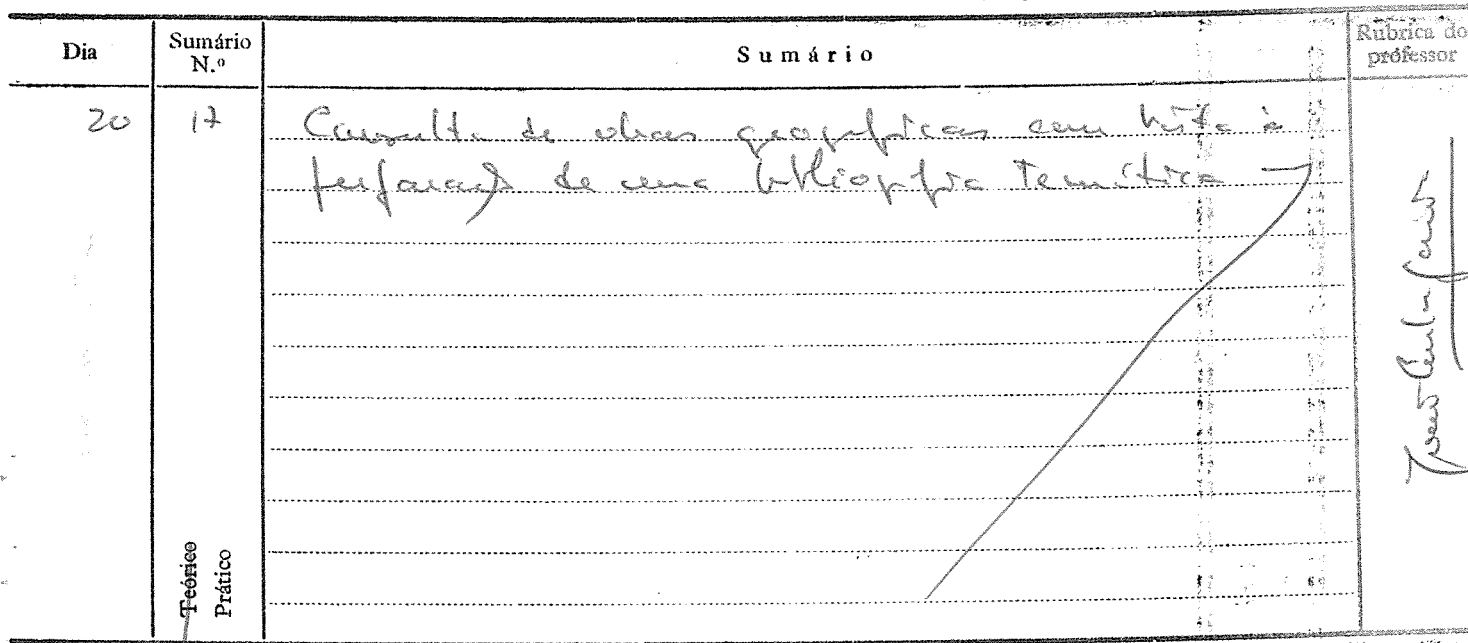 Dia
Sumário
N.º
Sumário
Rubrica do
professor
20
17
Consulta de obras geográficas com vista à
preparação de uma bibliografia temática
Teórico
Prático